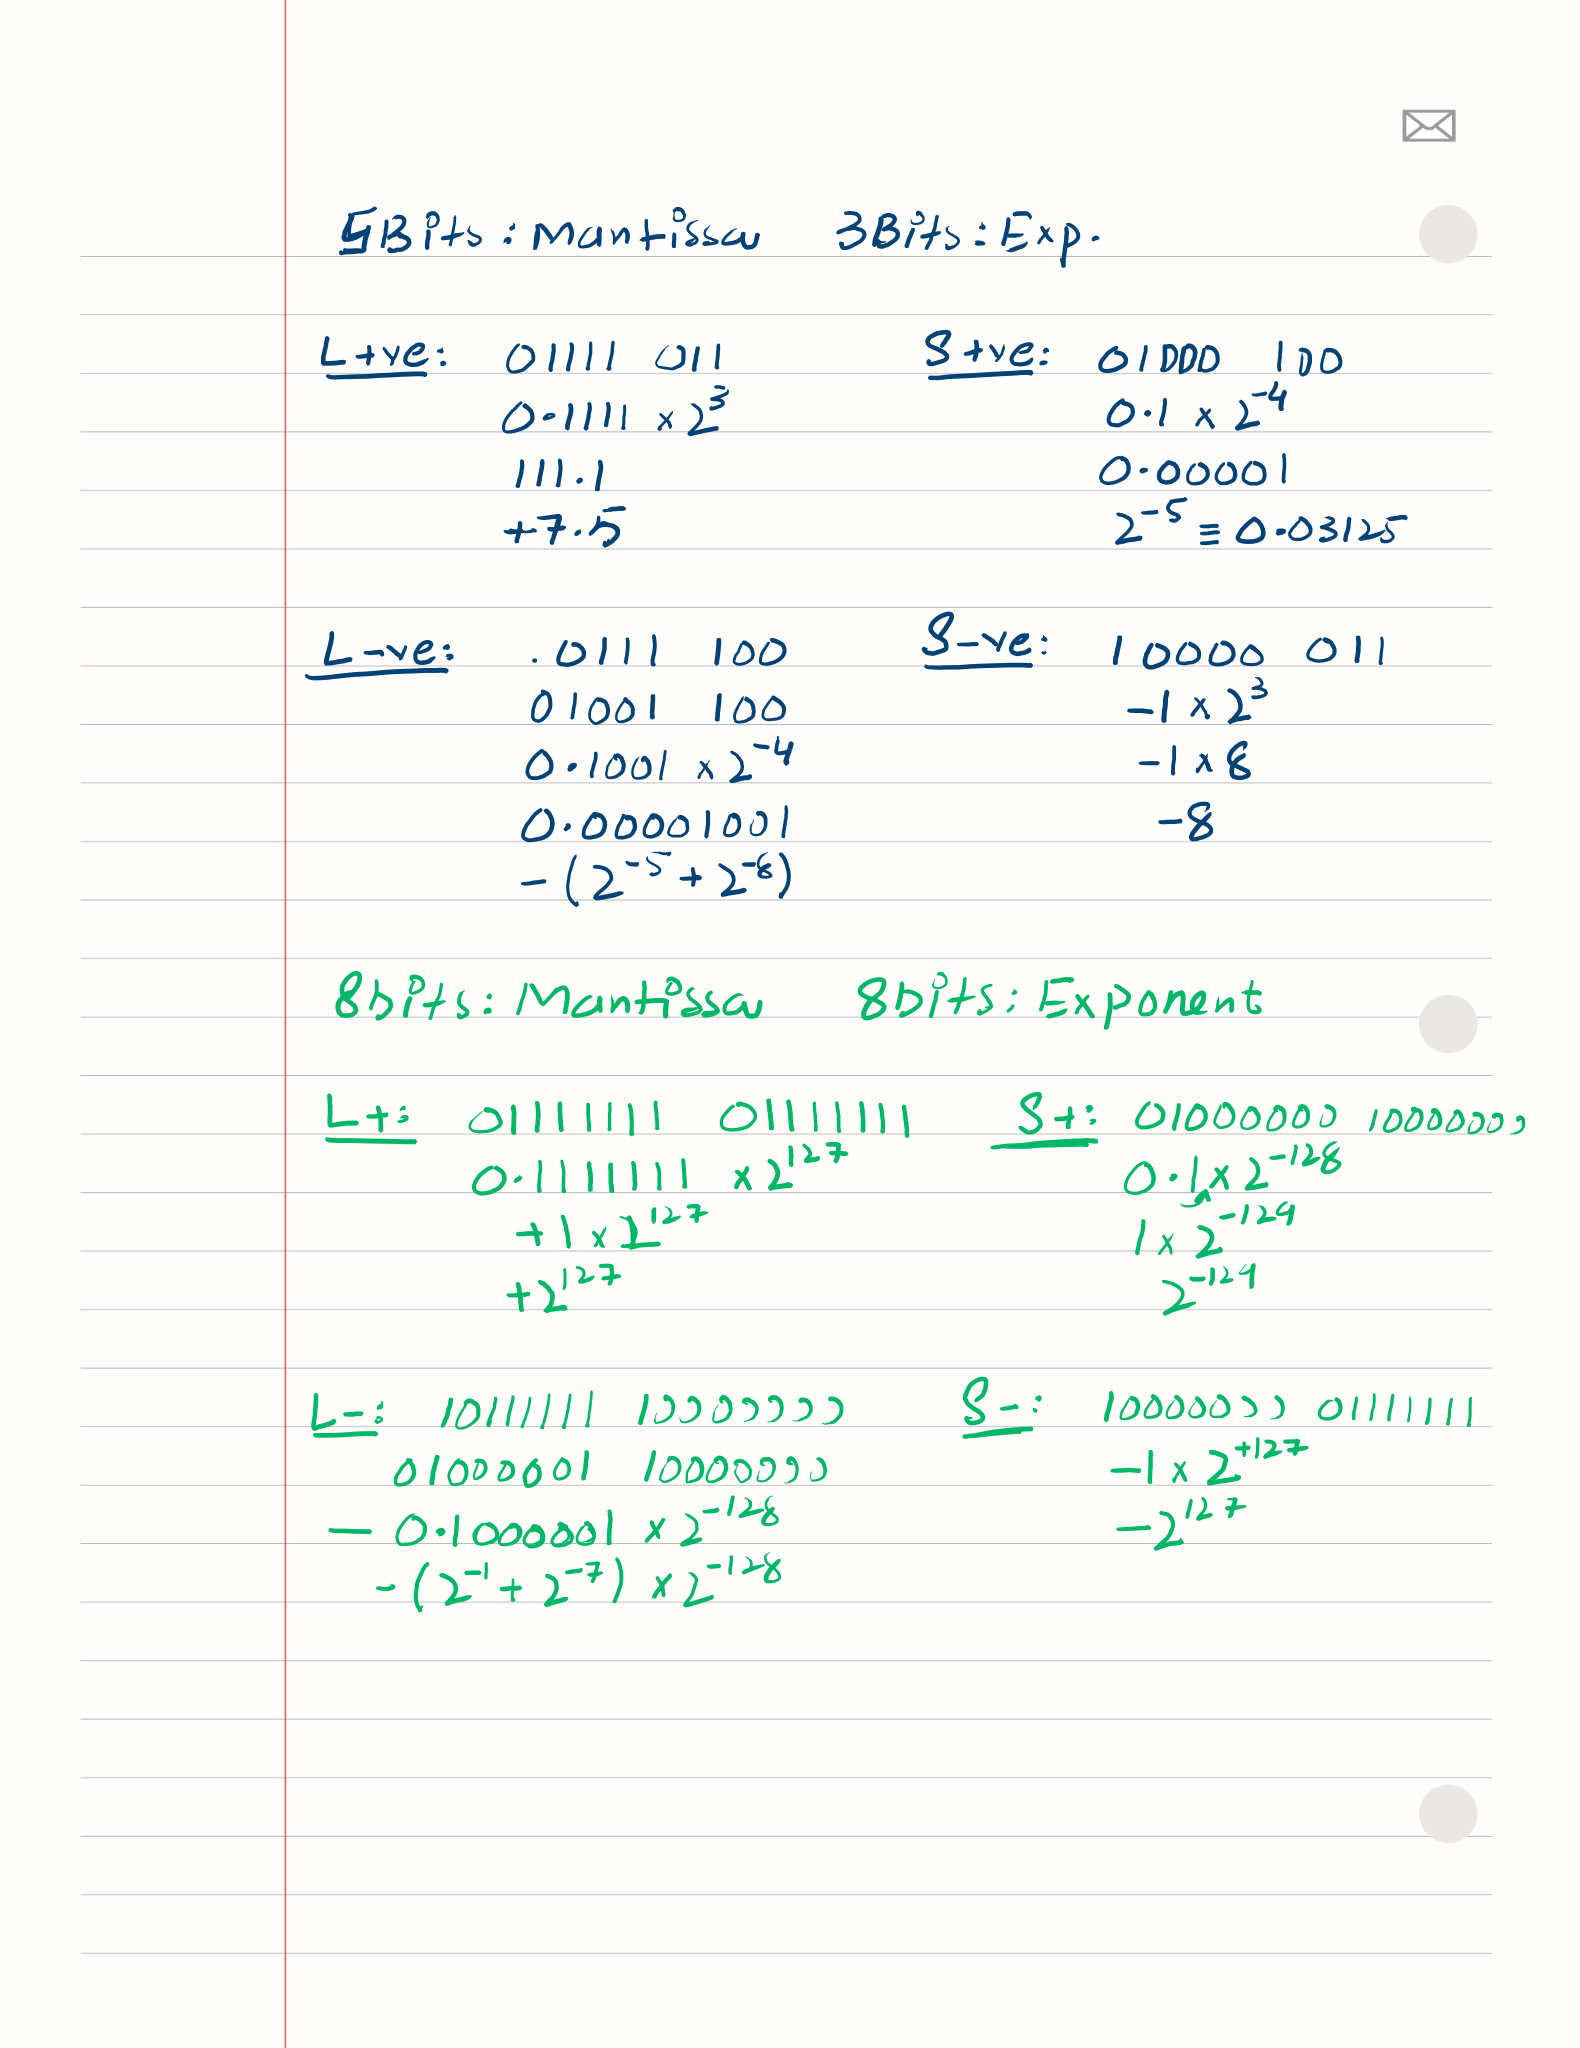 5Bits: Mantissa 3Bits: Exp.
L+ve: 01111 011
0.1111 × 2³
111.1
+7.5
S+ve: 01000 100
0.1 × 2⁻⁴
0.00001
2⁻⁵ ≡ 0.03125
L-ve: .0111 100
01001 100
0.1001 × 2⁻⁴
0.00001001
-(2⁻⁵ + 2⁻⁸)
S-ve: 10000 011
-1 × 2³
-1 × 8
-8
8bits: Mantissa 8bits: Exponent
L+: 01111111 01111111
0.1111111 × 2¹²⁷
+1 × 2¹²⁷
+2¹²⁷
S+: 01000000 10000000
0.1 × 2⁻¹²⁸
1 × 2⁻¹²⁹
2⁻¹²⁹
L-: 10111111 10000000
01000001 10000000
- 0.1000001 × 2⁻¹²⁸
-(2⁻¹ + 2⁻⁷) × 2⁻¹²⁸
S-: 10000000 01111111
-1 × 2⁺¹²⁷
-2¹²⁷